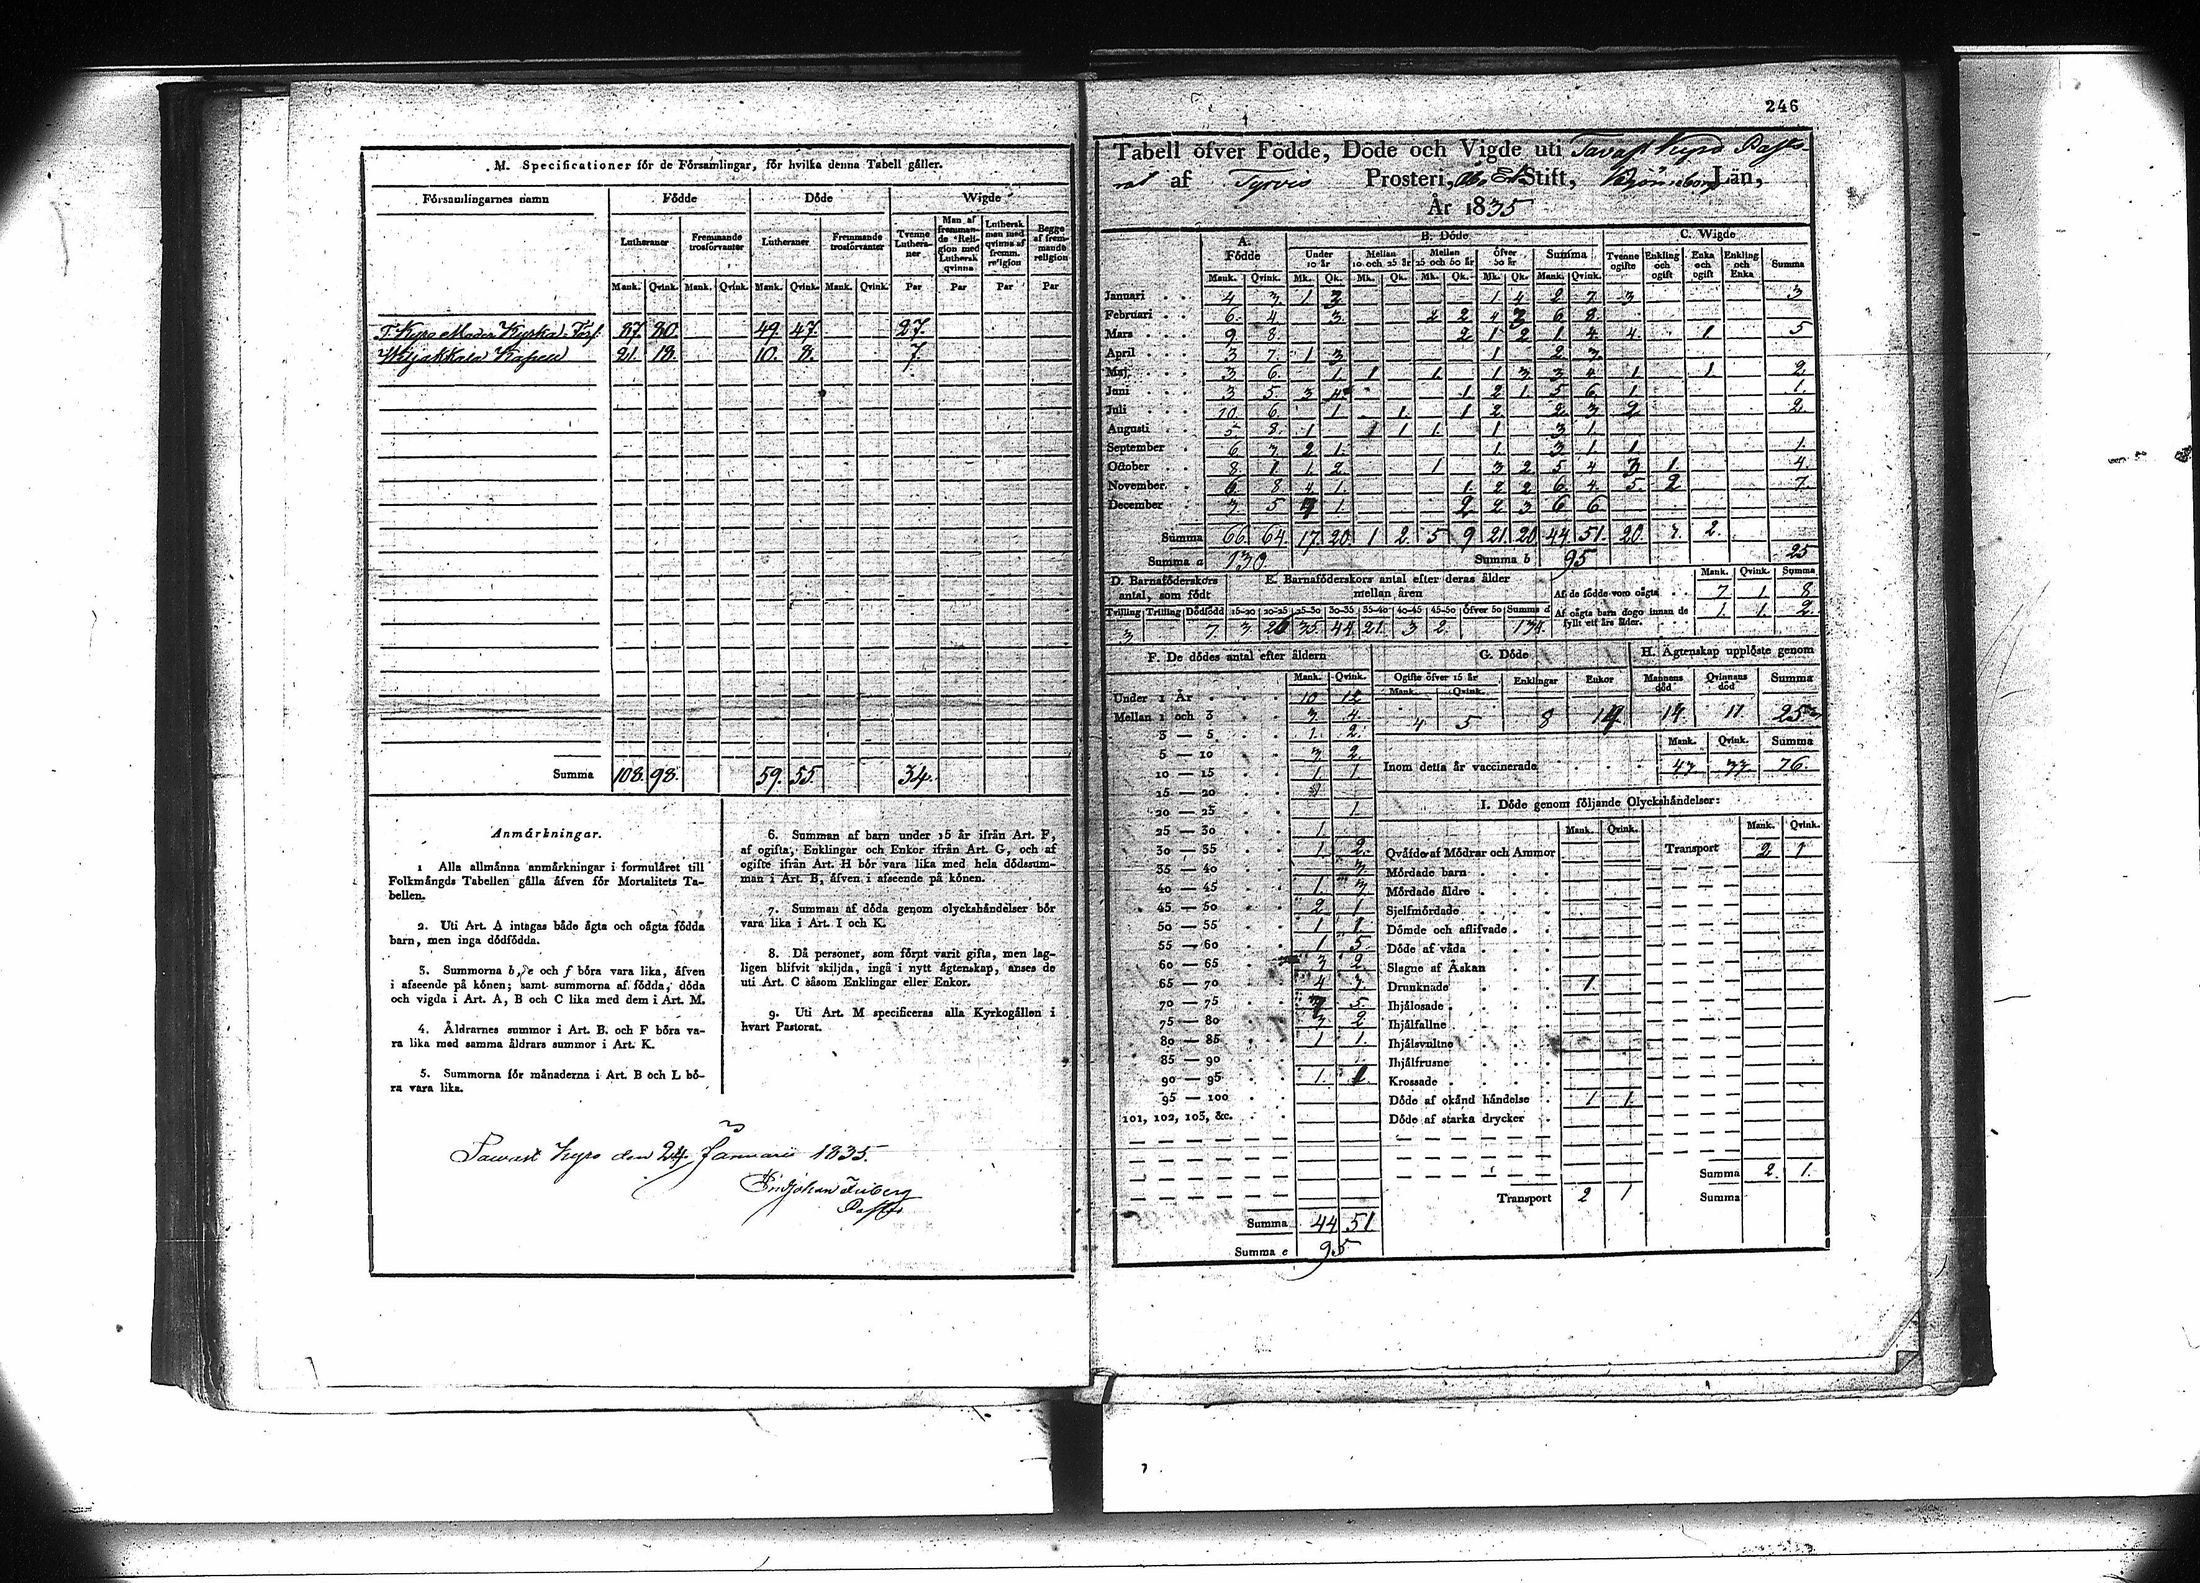 M. Specificationer för de Församlingar, för hvilka denna Tabell gäller.
Församlingarnes namn Födde Döde Wigde
Lutheraner Fremmande trosförvanter Lutheraner Fremmande trosförvanter Tvenne Lutheraner Man af fremmande Religion med Luthersk qvinna Luthersk man med qvinna af fremm. religion Begge af fremmande religion
Mank. Qvink. Mank. Qvink. Mank. Qvink. Mank. Qvink. Par Par Par Par
T. Kyro Moder Kyrko Förs. 87. 80. 49. 47. 27.
Kapell 21. 18. 10. 8. 7.
Summa 108. 98. 59. 55. 34.
Anmärkningar.
1 Alla allmänna anmärkningar i formuläret till
Folkmängds Tabellen gälla äfven för Mortalitets Ta-
bellen.
2. Uti Art. A intagas både ägta och oägta födda
barn, men inga dödfödda.
3. Summorna b, e och f böra vara lika, äfven
i afseende på könen; samt summorna af födda, döda
och vigda i Art. A, B och C lika med dem i Art. M.
4. Åldrarnes summor i Art. B. och F böra va-
ra lika med samma åldrars summor i Art. K.
5. Summorna för månaderna i Art. B och L bö-
ra vara lika.
6. Summan af barn under 15 år ifrån Art. F,
af ogifta, Enklingar och Enkor ifrån Art. G, och af
ogifte ifrån Art. H bör vara lika med hela dödssum-
man i Art. B, äfven i afseende på könen.
7. Summan af döda genom olyckshändelser bör
vara lika i Art. I och K.
8. Då personer, som förut varit gifta, men lag-
ligen blifvit skiljda, ingå i nytt ägtenskap, anses de
uti Art. C såsom Enklingar eller Enkor.
9. Uti Art. M specificeras alla Kyrkogällen i
hvart Pastorat.
Tavast Kyro den 24 Januarii 1835.
246
Tabell öfver Födde, Döde och Vigde uti Tavast Kyro Pasto
rat af Tyrvis Prosteri, Åbo Stift, Björneborgs Län,
År 1835
A. Födde B. Döde C. Wigde
Under 10 år Mellan 10 och 25 år Mellan 25 och 50 år Öfver 50 år Summa Tvenne ogifte Enkling och ogift Enka och ogift Enkling och Enka Summa
Mank. Qvink. Mk. Qk. Mk. Qk. Mk. Qk. Mk. Qk. Mank. Qvink.
Januari 4 3. 1 2 1 4 2 7. 3 3
Februari 6. 4 3. 2 2 4 3 6 8.
Mars 9 8. 2 1 2 1 4 4. 1 5
April 3 7. 1 3 1 2 3.
Maj 3 6. 1. 1 1. 1 3 3 4 1 1. 2.
Juni 3 5. 3 4 1 2 1 5 6. 1 1.
Juli 10 6. 1. 1. 1 2. 2. 3 2 2.
Augusti 5 8. 1 1 1 1. 1 3 1.
September 6 3. 2 1. 1. 3 1 1 1.
October 8 1 1. 2. 1 3 2 5 4 3 1. 4.
November 6 8 4 1. 1. 2 2 6 4. 5. 2 7.
December 3 5 1. 2 2 3 6 6
Summa 66. 64. 17. 20. 1 2. 5 9 21. 20 44 51. 20. 2. 25
Summa a 130. Summa b 95
D. Barnaföderskors antal, som födt E. Barnaföderskors antal efter deras ålder mellan åren
Tvilling Trilling Dödfödd 15-20 20-25 25-30 30-35 35-40 40-45 45-50 Öfver 50 Summa d
3 7. 3 26 35. 44 21. 3 2. 134.
Mank. Qvink. Summa
Af de födde voro oägta 7 1 8
Af oägta barn dogo innan de fyllt ett års ålder. 1 1. 2.
F. De dödes antal efter åldern
Mank. Qvink.
Under 1 År 10 12
Mellan 1 och 3 3. 4.
3 — 5 1. 2.
5 — 10 3. 2
10 — 15 1 1
15 — 20
20 — 25 1
25 — 30 1
30 — 35 1. 2.
35 — 40 3.
40 — 45 1. 3
45 — 50 2. 1
50 — 55 1 1.
55 — 60 1 5
60 — 65 3 2
65 — 70 4 7.
70 — 75 5.
75 — 80 3 2
80 — 85 1 1.
85 — 90
90 — 95 1. 1
95 — 100
101, 102, 103, &c.
Summa 44 51.
Summa e 95
G. Döde
Ogifte öfver 15 år Enklingar Enkor
Mank. Qvink.
4 5 8 14
H. Ägtenskap upplöste genom
Mannens död Qvinnans död Summa
14. 11 25
Mank. Qvink. Summa
Inom detta år vaccinerade 43 33 76.
I. Döde genom följande Olyckshändelser:
Mank. Qvink. Mank. Qvink.
Qväfde af Mödrar och Ammor Transport 2 1
Mördade barn
Mördade äldre
Sjelfmördade
Dömde och aflifvade
Döde af våda
Slagne af Åskan
Drunknade 1
Ihjälosade
Ihjälfallne
Ihjälsvultne
Ihjälfrusne
Krossade
Döde af okänd händelse 1 1.
Döde af starka drycker
Summa 2. 1.
Transport 2 1 Summa